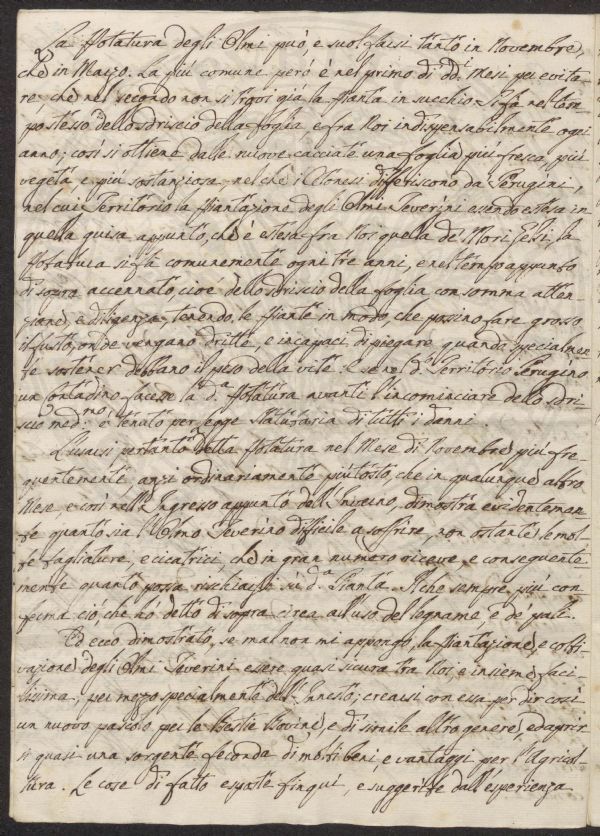 La Potatura degli Olmi può, e suol farsi tanto in Novembre,
che in Marzo. La più comune però è nel primo di dd.i Mesi per evita-
re che nel secondo non si trovi già la Pianta in succhio. Si fà nel tem-
po stesso dello sdriscio della foglia, e fra Noi indispensabilmente ogni
anno; così si ottiene dalle nuove cacciate una foglia più fresca, più
vegeta, e più sostanziosa, nel che i differiscono da Perugini,
nel cui Territorio la Piantazione degli Olmi Teverini essendo estesa in
quella guisa appunto, che è estesa fra Noi quella de' Mori Celsi, la
Potatura si fà comunemente ogni trè anni, e nel tempo appunto
di sopra accennato, cioè dello sdriscio della foglia con somma atten-
zione, e diligenza, tenendo le Piante in modo che possino fare grosso
il fusto, onde vengano dritte, e incapaci di piegare quando specialmen-
te sostener debbano il peso della vite. E se nel d.o Territorio Perugino
un Contadino facesse la d.a Potatura avanti l'incominciare dello sdri-
scio med.mo è tenuto per legge Statutaria di tutti i danni.
Usarsi pertanto detta Potatura nel Mese di Novembre più fre-
quentemente, anzi ordinariamente piutosto, che in qualunque altro
Mese, e così nell'Ingresso appunto dell'Inverno, dimostra evidenteman-
te quanto sia l'Olmo Teverino difficile a soffrire, non ostante le mol-
te tagliature, e cicatrici, che in gran numero riceve, e conseguente
mente quanto possa rischiarsi sù d.a Pianta. Il che sempre più con-
ferma ciò, che hò detto di sopra circa all'uso del legname, e de' pali.
Ed ecco dimostrato, se mal non mi appongo, la Piantazione, e colti-
vazione degli Olmi Teverini essere quasi sicura tra Noi, e insieme faci-
lissima, per mezzo specialmente dell'Innesto; crearsi con essa per dir così
un nuovo pascolo per le Bestie Bovine, e di simile altro genere, ed aprir-
si quasi una sorgente feconda di molti beni, e vantaggi per l'Agricol-
tura. Le cose di fatto esposte fin quì, e suggerite dall'esperienza